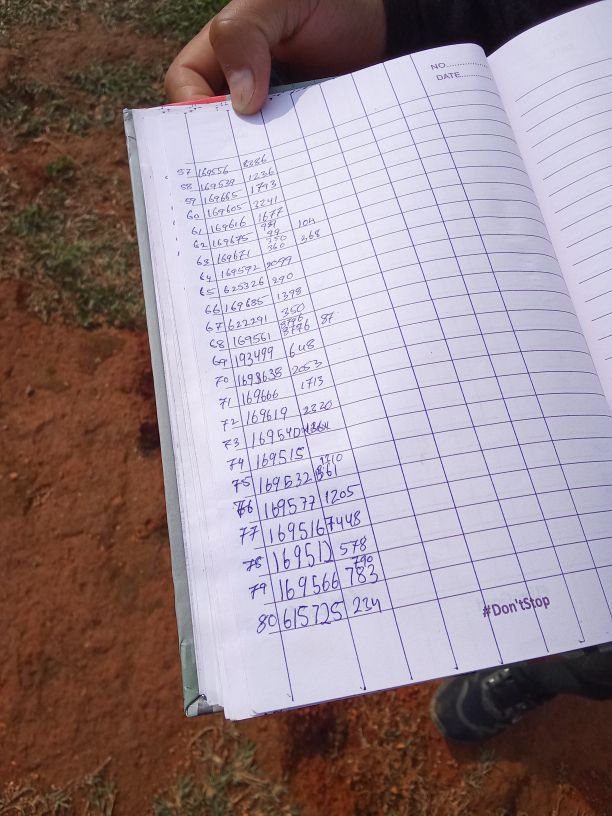 NO..............
DATE..........
57 169556 8386
58 169539 1236
59 169665 1793
60 169605 3241
61 169616 1677
62 169675 99 104
63 169671 360 368
64 169592 2099
65 625326 290
66 169685 1398
67 622291 350
68 169561 3796 87
69 193499 648
70 1698638 2053
71 169666 1713
72 169619 2320
73 169540
74 169515
75 169532 861
76 169577 1205
77 169516 7448
78 169512 578
79 169566 790
783
80 615725 234
#Don'tStop